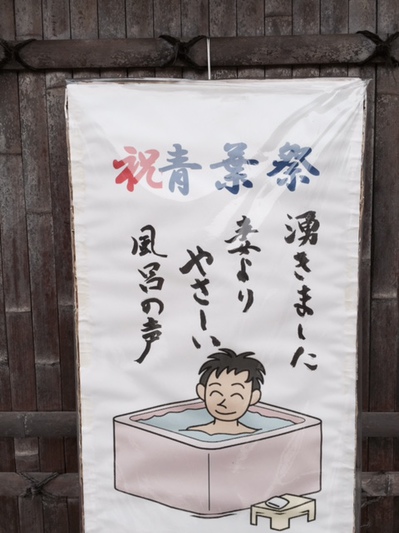 祝青葉祭
湧きました
妻より
やさしい
風呂の声